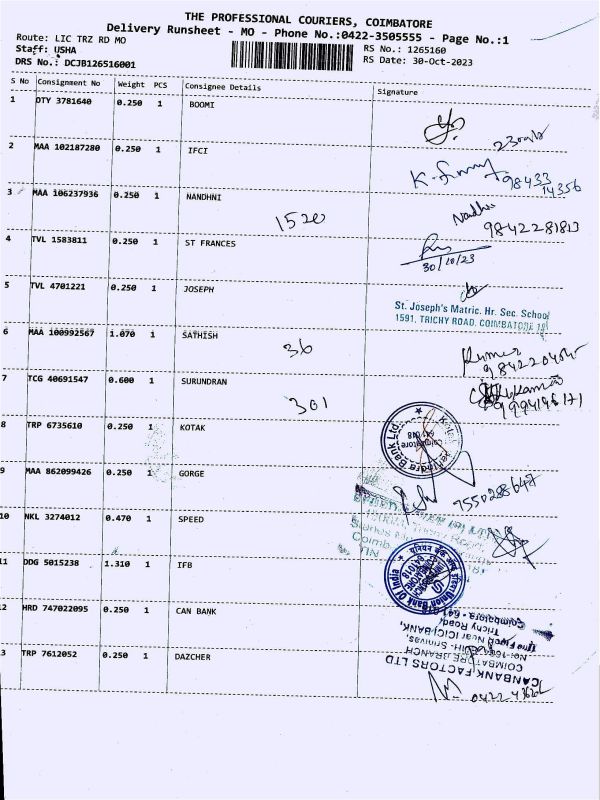 THE PROFESSIONAL COURIERS, COIMBATORE
Delivery Runsheet - MO - Phone No.:0422-3505555 - Page No.:1
Route: LIC TRZ RD MO
Staff: USHA
DRS No.: DCJB126516001
RS No.: 1265160
RS Date: 30-Oct-2023
S No Consignment No Weight PCS Consignee Details Signature
1 DTY 3781640 0.250 1 BOOMI
2 MAA 102187280 0.250 1 IFCI
98433
14356
3 MAA 106237936 0.250 1 NANDHNI
1520
9842281813
4 TVL 1583811 0.250 1 ST FRANCES
30/10/23
5 TVL 4701221 0.250 1 JOSEPH
St. Joseph's Matric. Hr. Sec. School
1591, TRICHY ROAD, COIMBATORE 18
6 MAA 100992567 1.070 1 SATHISH
36
Kumar
7 TCG 40691547 0.600 1 SURUNDRAN
301
8 TRP 6735610 0.250 1 KOTAK
Coimbatore
641 018
9 MAA 862099426 0.250 1 GORGE
7550288647
10 NKL 3274012 0.470 1 SPEED
11 DDG 5015238 1.310 1 IFB
Union Bank Of India
12 HRD 747022095 0.250 1 CAN BANK
CANBANK FACTORS LTD
COIMBATORE BRANCH
Near ICICI BANK,
Trichy Road,
13 TRP 7612052 0.250 1 DAZCHER